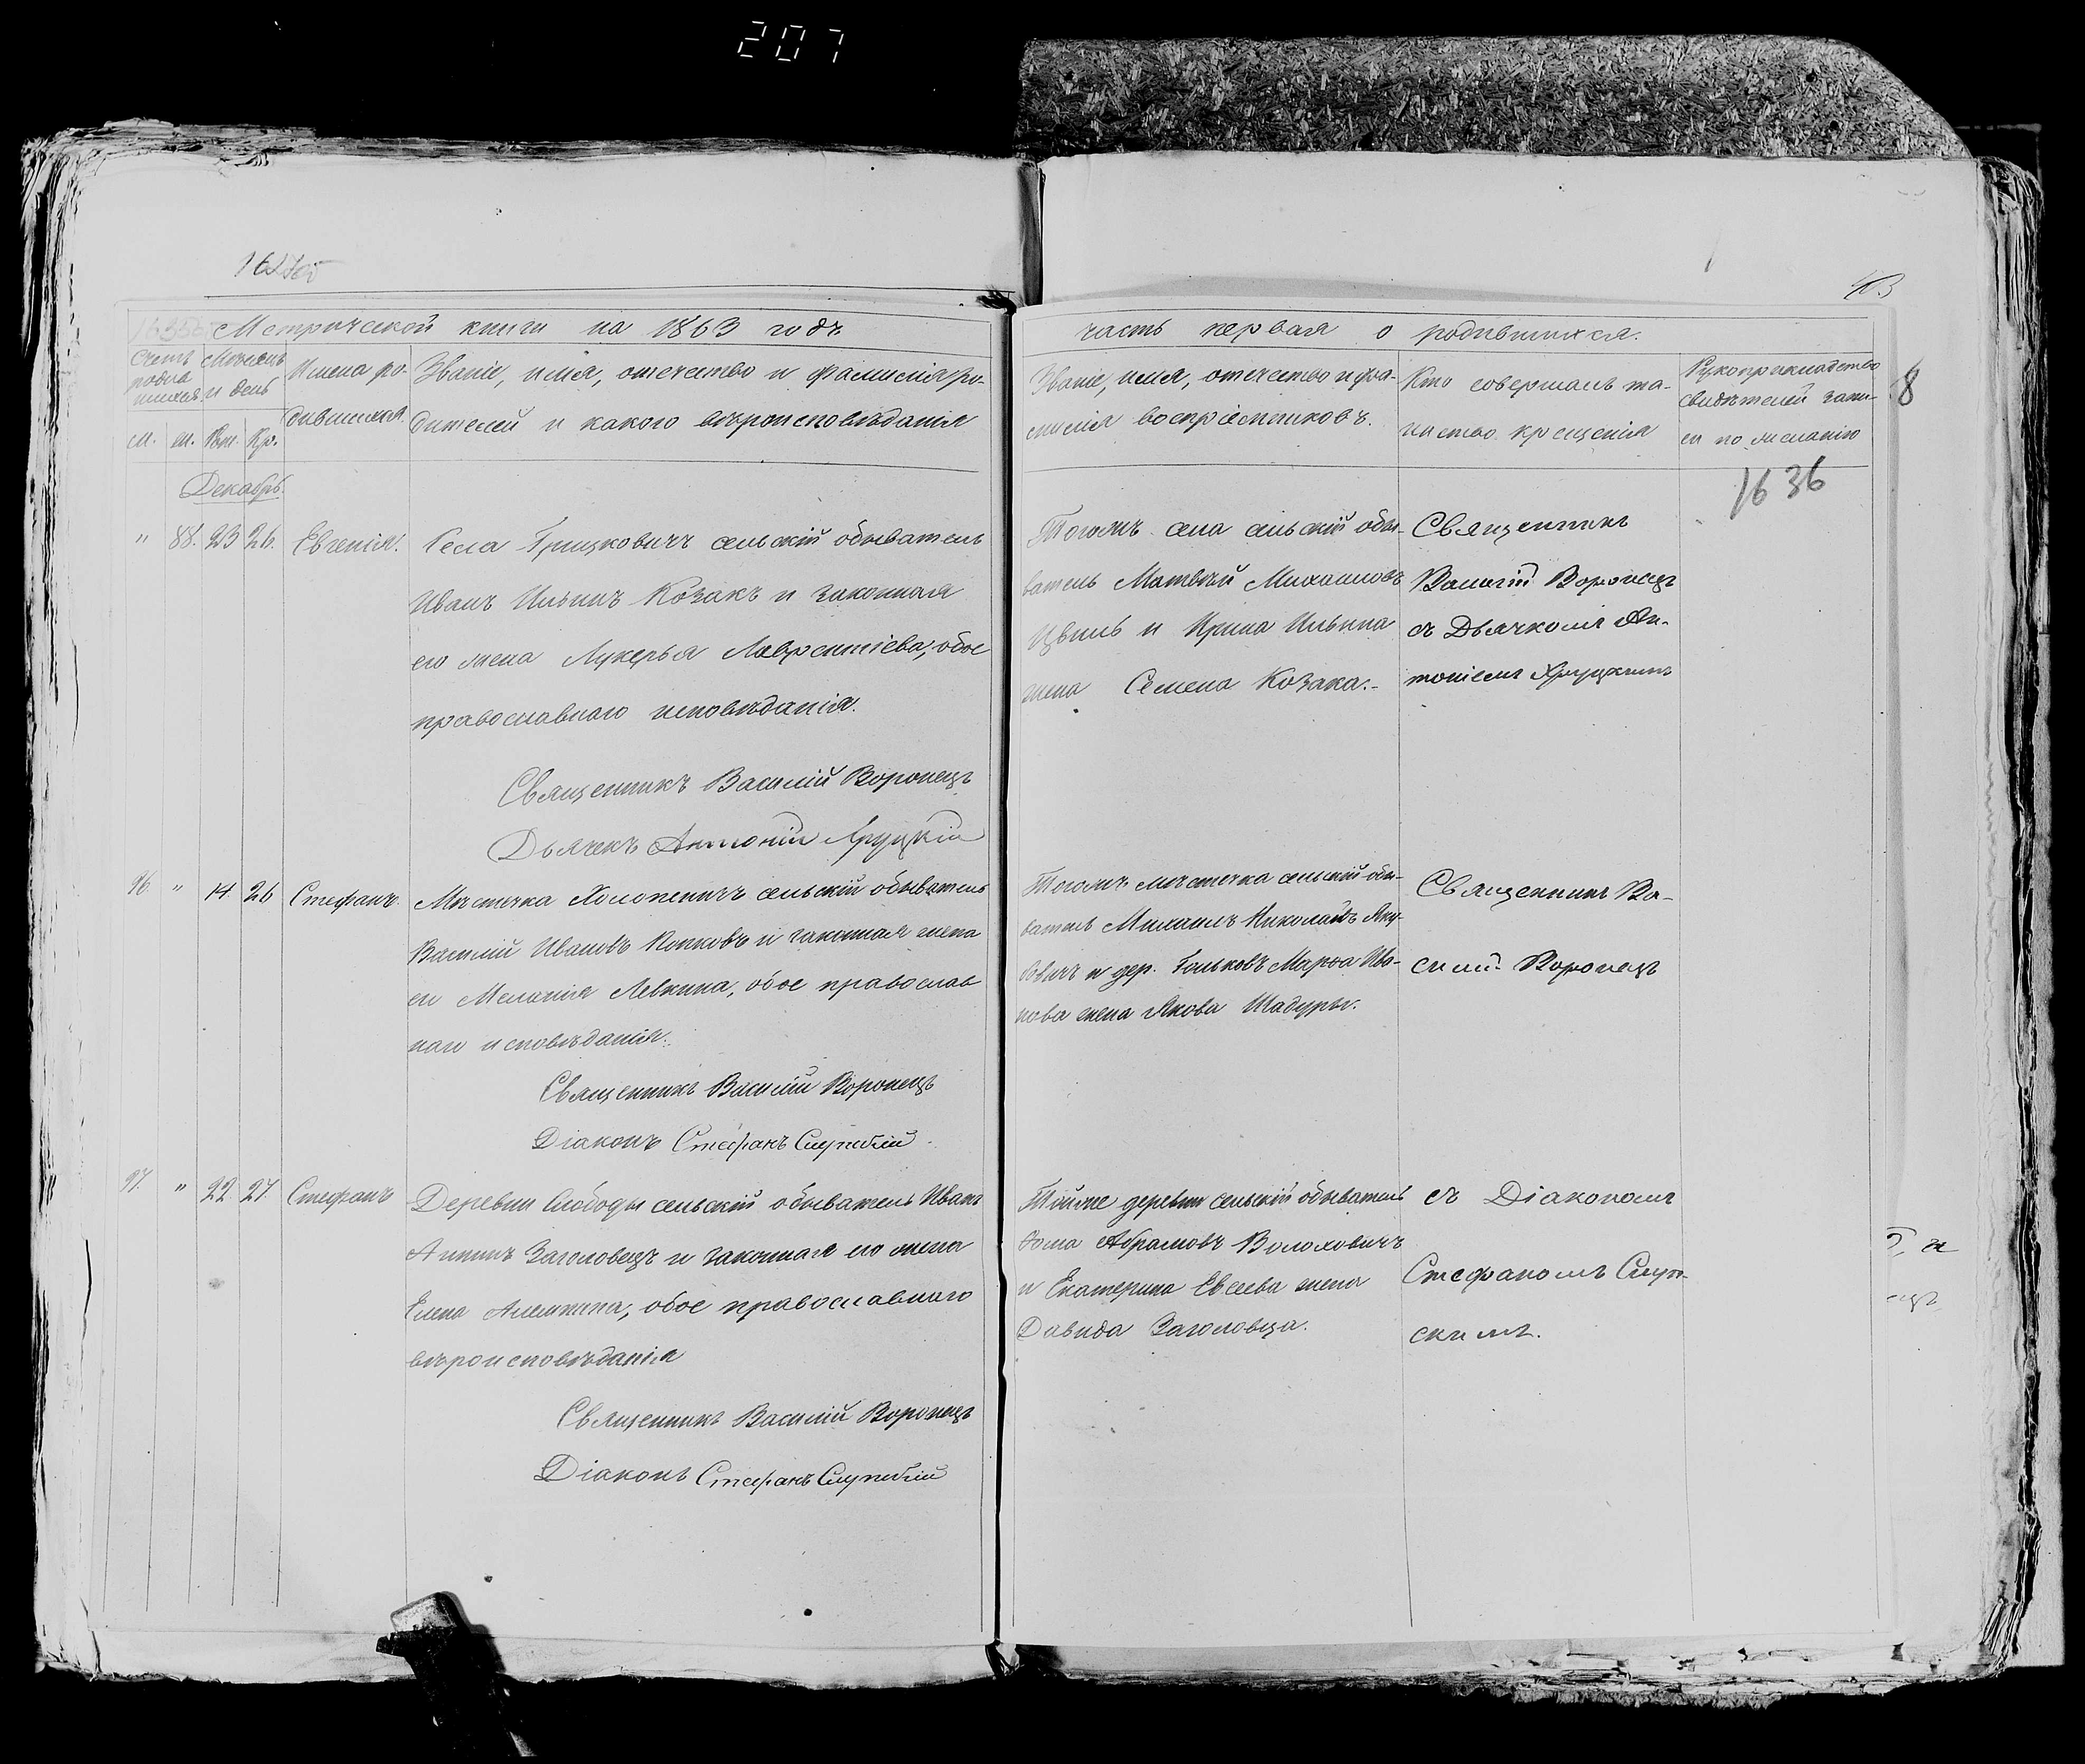 207
Метрической книги на 1863 годъ
Счетъ родившихся
Мѣсяцъ и день
Имена родившихся.
Званіе, имя, отечество и фамилія родителей и какого вѣроисповѣданія
м. ж. Рж. Кр.
Декабрь.
" 88. 23 26. Евгенія.
Села Грицковичъ сельскій обыватель
Иванъ Ильинъ Козакъ и законная
его жена Лукерья Лаврентіева, обое
православнаго исповѣданія.
Священникъ Василій Воронецъ
Дьячекъ Антоній
96. " 14. 26 Стефанъ.
Мѣстечка Холопеничъ сельскій обыватель
Василій Ивановъ Копковъ и законная жена
его Меланія Левкина, обое православ
наго исповѣданія.
Священникъ Василій Воронецъ
Діаконъ Стефанъ Слупскій
97. " 22. 27. Стефанъ
Деревни Слободы сельскій обыватель Иванъ
Заголовецъ и законная его жена
Елена, обое православнаго
вѣроисповѣданія
Священникъ Василій Воронецъ
Діаконъ Стефанъ Слупскій
часть первая о родившихся.
Званіе, имя, отечество и фамилія воспріемниковъ.
Кто совершалъ таинство крещенія
Рукоприкладство свидѣтелей записи по желанію
8
1636
Тогожъ села сельскій обы-
ватель Матвѣй Михаиловъ
Цвиль и Ирина Ильина
жена Семена Козака.
Священникъ
Василій Воронецъ
съ Дьячкомъ Ан-
тоніемъ
Тогожъ мѣстечка сельскій обы-
ватель Михаилъ Николаевъ Яку-
бвичъ и дер. Гольковъ Марѳа Ива-
нова жена Якова Шадуры.
Священникъ Ва-
силій Воронецъ
Тойже деревни сельскій обыватель
Ѳома Абрамовъ Волоховичъ
и Екатерина Евсеева жена
Давида Заголовца.
съ Діакономъ
Стефаномъ Слуп-
скимъ.